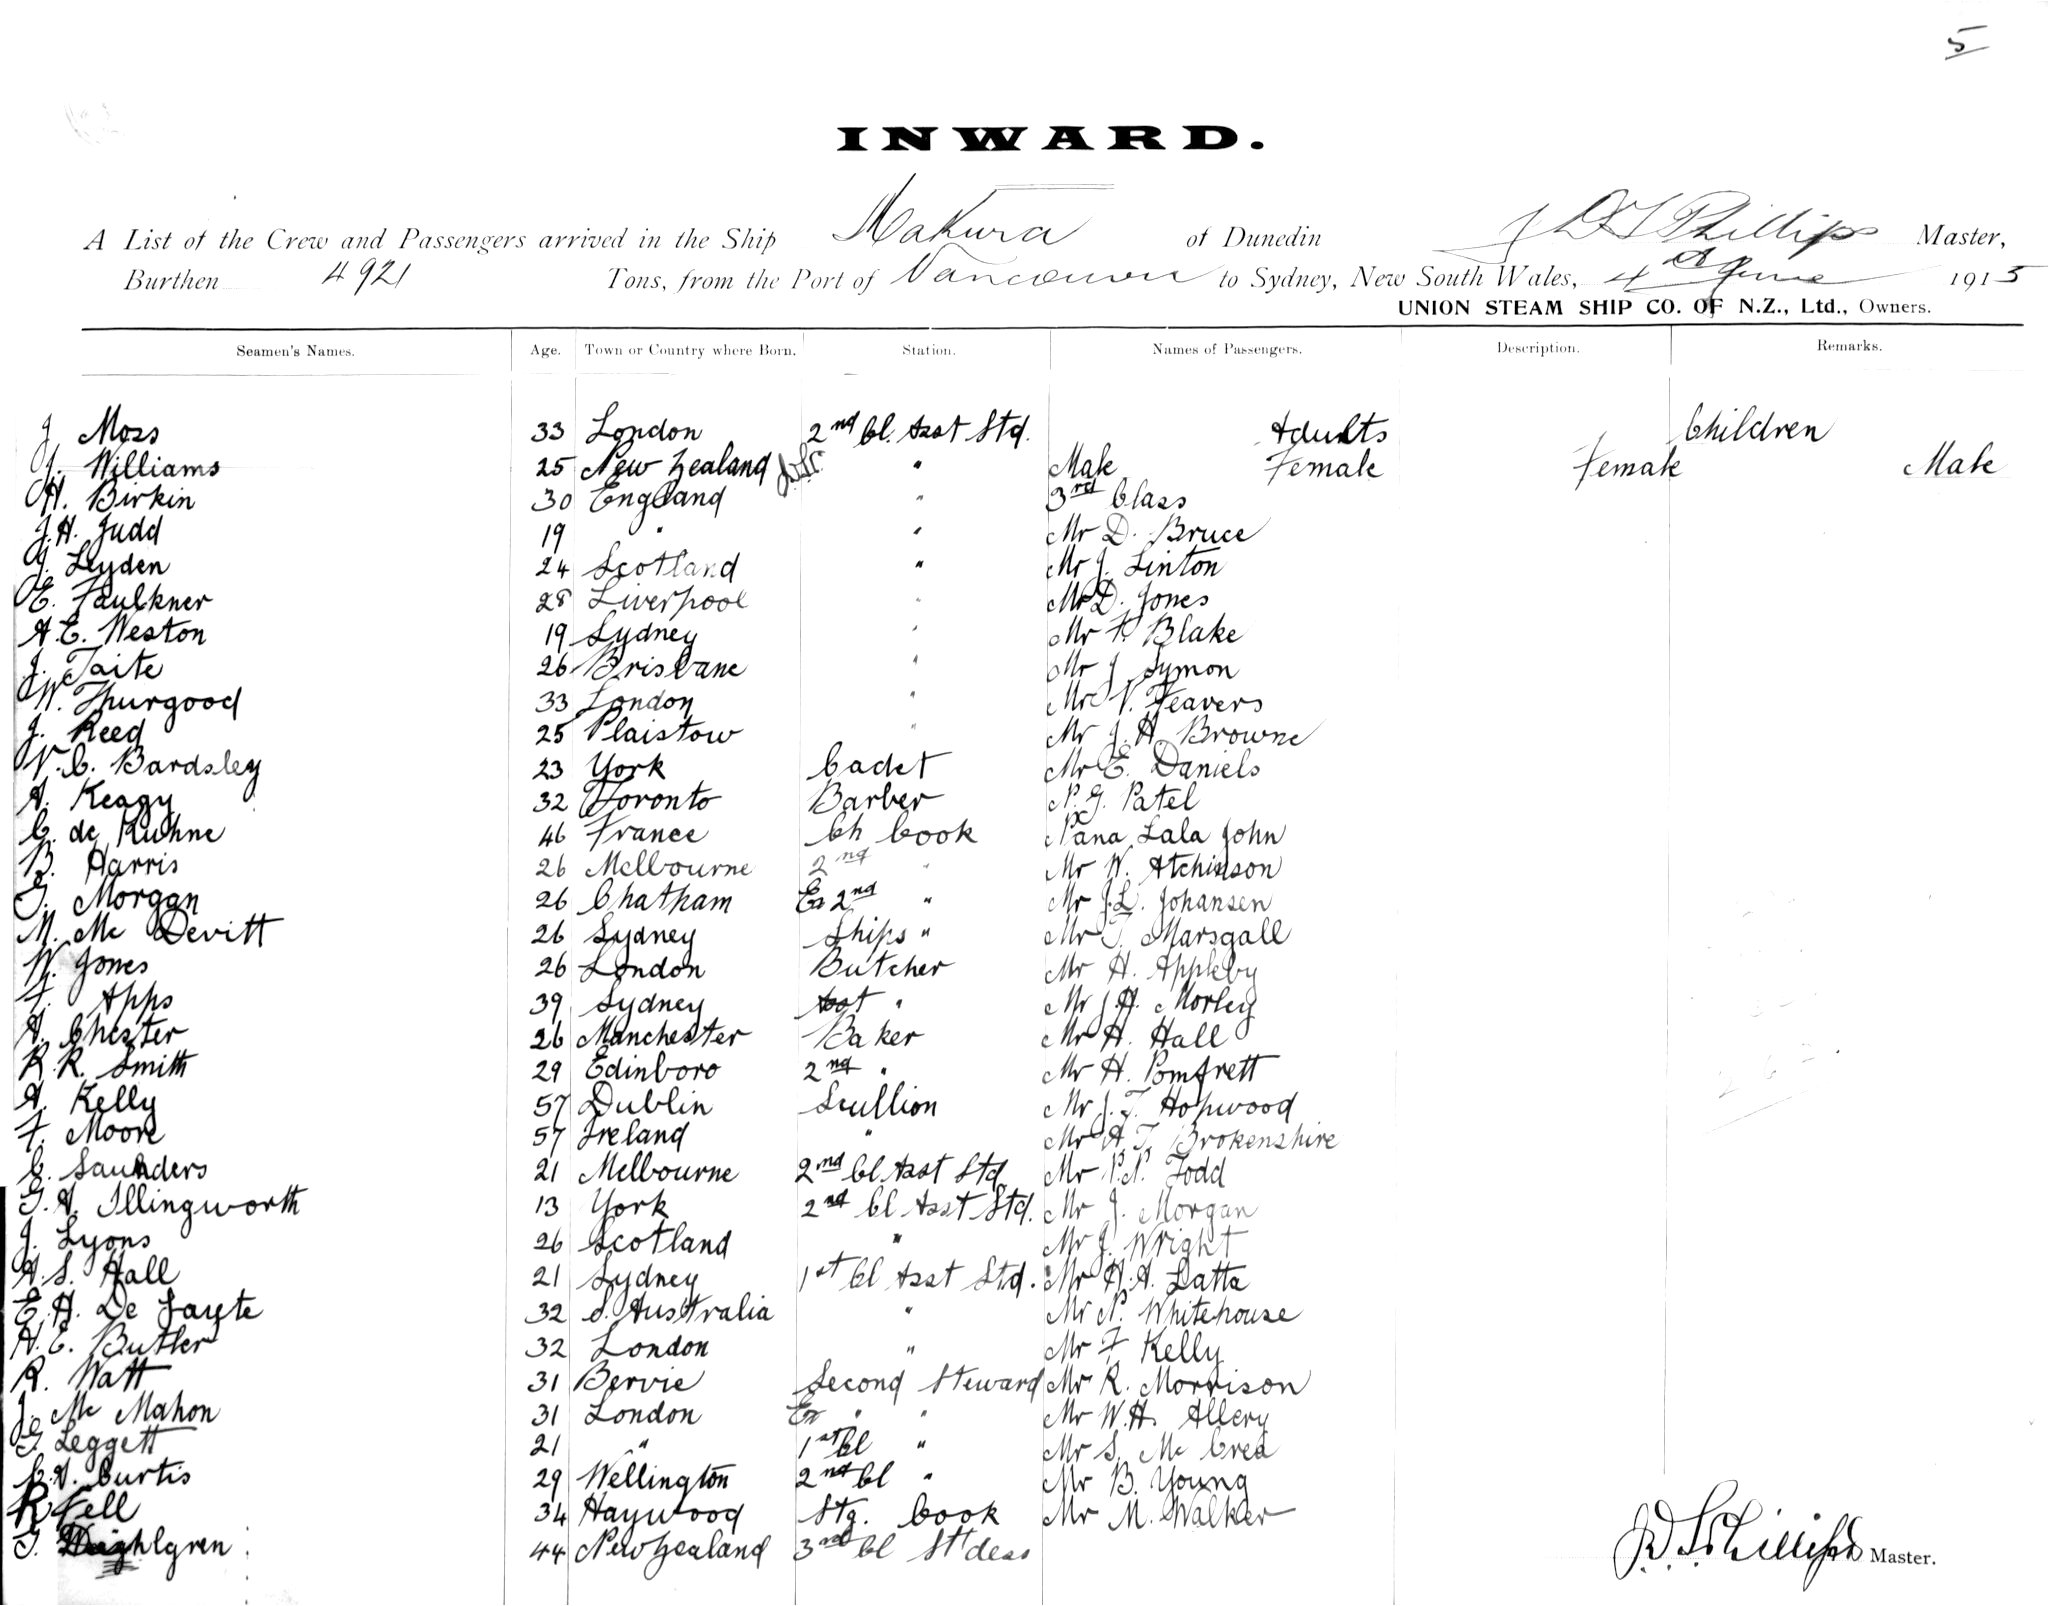 5
INWARD.
A List of the Crew and Passengers arrived in the Ship Makura of Dunedin J D S Phillips Master,
Burthen 4921 Tons, from the Port of Vancouver to Sydney, New South Wales, 4th June 1915
UNION STEAM SHIP CO. OF N.Z., Ltd., Owners.
Seamen's Names. Age. Town or Country where Born. Station. Names of Passengers. Description. Remarks.
J. Moss 33 London 2nd Cl. Asst Std. Adults Children
J. Williams 25 New Zealand " Male Female Female Male
H. Birkin 30 England " 3rd Class
J.H. Judd 19 " " Mr D. Bruce
J. Leyden 24 Scotland " Mr J. Linton
E. Faulkner 28 Liverpool " Mr D. Jones
A.E. Weston 19 Sydney " Mr F. Blake
J. Taite 26 Brisbane " Mr J Symon
W. Thurgood 33 London " Mr V. Feavers
J. Reed 25 Plaistow " Mr J. H. Browne
V.C. Bardsley 23 York Cadet Mr E. Daniels
A. Keagy 32 Toronto Barber N. G. Patel
C. de Kuhne 46 France Ch Cook Nana Lala John
B. Harris 26 Melbourne 2nd " Mr W. Atchinson
G. Morgan 26 Chatham Ex 2nd " Mr J.L. Johansen
M. Mc Devitt 26 Sydney Ships " Mr T. Marsgall
W. Jones 26 London Butcher Mr H. Appleby
F. Apps 39 Sydney Asst " Mr J H. Morley
A. Chester 26 Manchester Baker Mr H. Hall
R.R. Smith 29 Edinboro 2nd " Mr H. Pomfrett
A. Kelly 57 Dublin Scullion Mr J. T. Hopwood
F. Moore 57 Ireland " Mr A. T. Brokenshire
C. Saunders 21 Melbourne 2nd Cl Asst Std Mr P.N. Todd
G.A. Illingworth 13 York 2nd Cl Asst Std. Mr J. Morgan
J. Lyons 26 Scotland " Mr J. Wright
A.S. Hall 21 Sydney 1st Cl Asst Std. Mr H.A. Latta
E.H. De Fayte 32 S. Australia " Mr N. Whitehouse
A.E. Butler 32 London " Mr F Kelly
R. Watt 31 Bervie Second Steward Mr R. Morrison
J. Mc Mahon 31 London Ex " " Mr W.H. Allery
G. Leggett 21 " 1st Cl " Mr S. Mc Crea
C.A. Curtis 29 Wellington 2nd Cl " Mr B. Young
R Fell 34 Haywood Stg. Cook Mr M. Walker
G. 44 New Zealand 3rd Cl St'dess
J. D. S. Phillips Master.